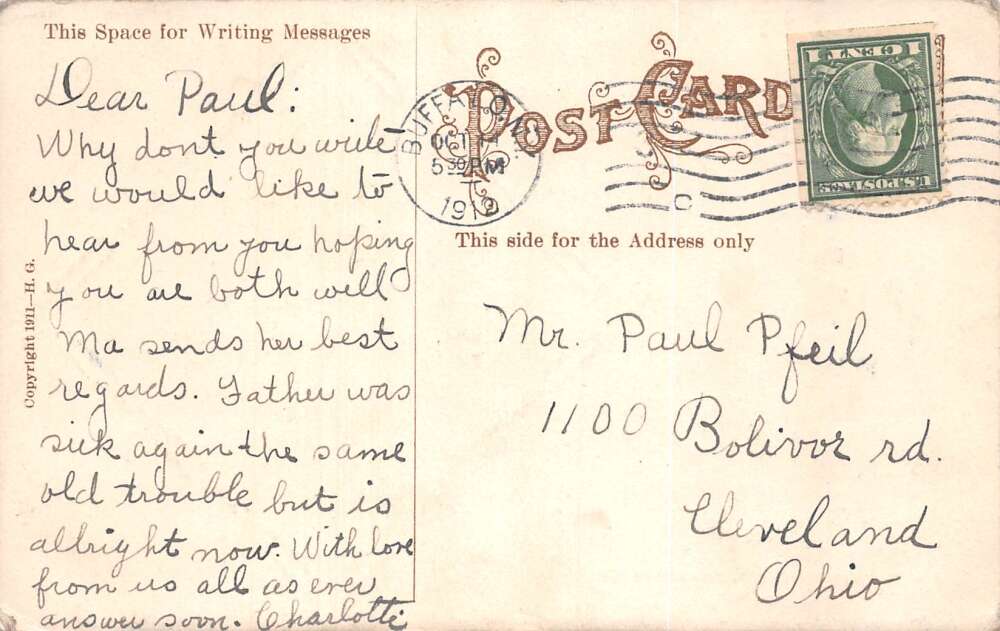 This Space for Writing Messages
Dear Paul:
Why dont you write
we would like to
hear from you hoping
you are both well
Ma sends her best
regards. Father was
sick again the same
old trouble but is
allright now. With love
from us all as ever
answer soon. Charlotte
Copyright 1911—H. G.
POST CARD
BUFFALO, N.Y.
5 30 PM
1 CENT 1
U.S. POSTAGE
C
This side for the Address only
Mr. Paul Pfeil
1100 Bolivor rd.
Cleveland
Ohio